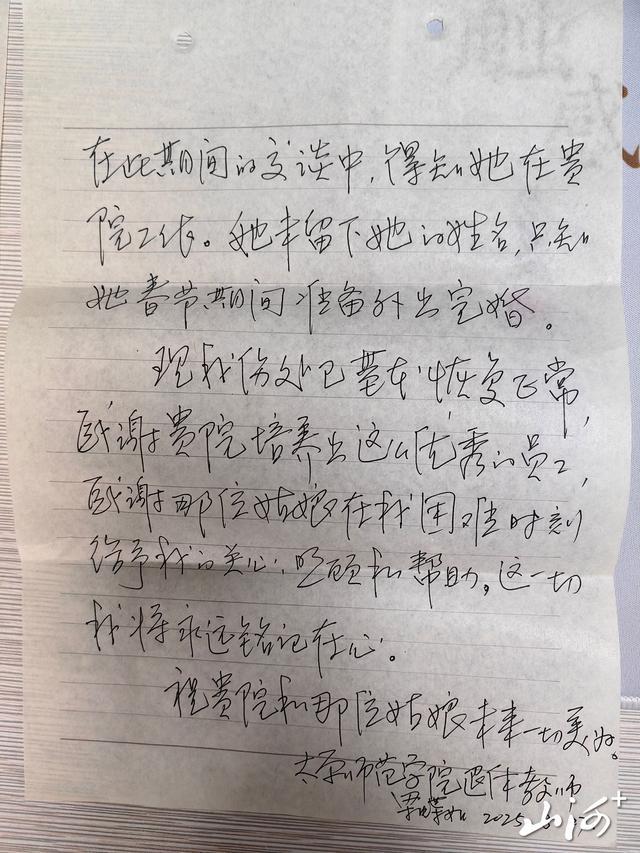 在此期间的交谈中，得知她在贵
院工作。她未留下她的姓名，只知
她春节期间准备外出完婚。
现我伤处已基本恢复正常，
感谢贵院培养出这么优秀的员工，
感谢那位姑娘在我困难时刻
给予我的关心、照顾和帮助。这一切
我将永远铭记在心。
祝贵院和那位姑娘未来一切美好。
太原师范学院退休教师
2025
山河+